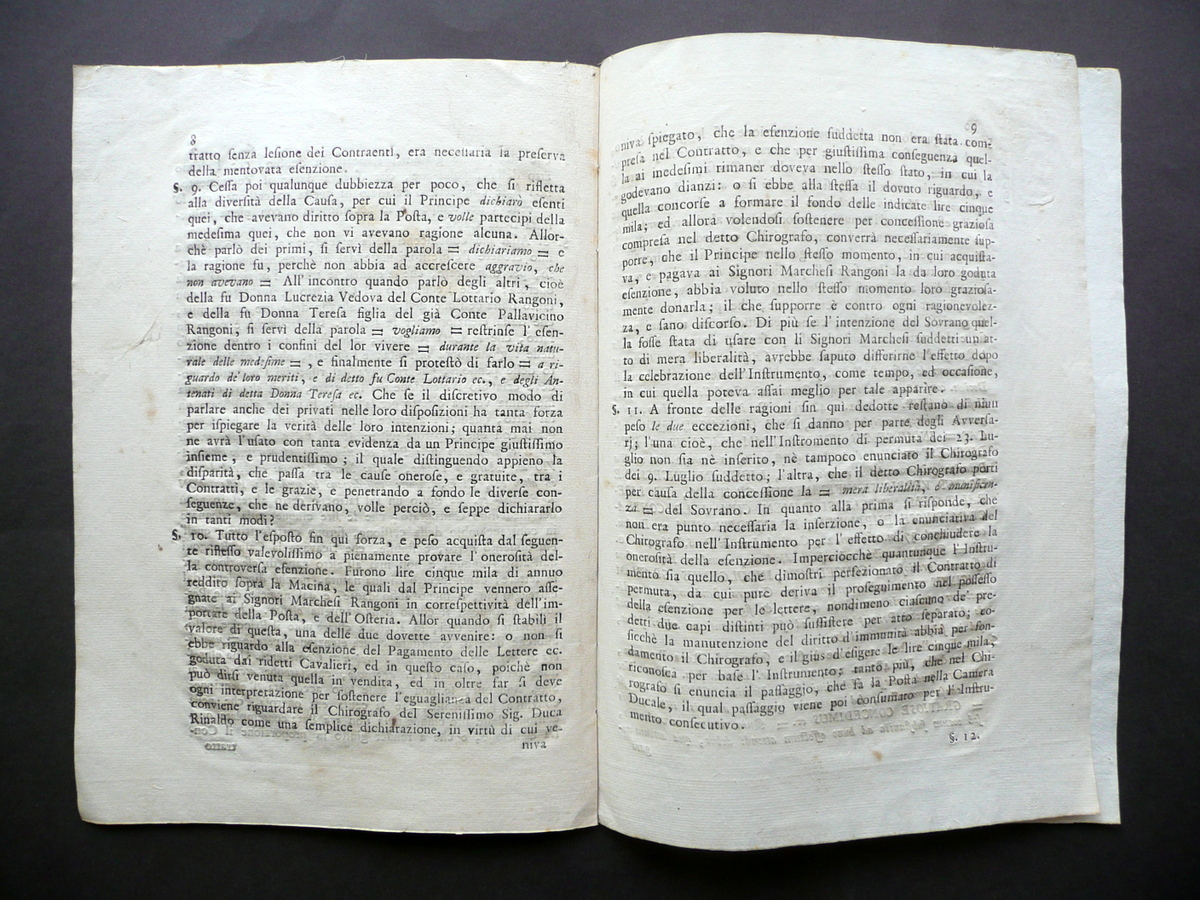 8
tratto senza lesione dei Contraenti, era necessaria la preserva
della mentovata esenzione.
§. 9. Cessa poi qualunque dubbiezza per poco, che si rifletta
alla diversità della Causa, per cui il Principe dichiarò esenti
quei, che avevano diritto sopra la Posta, e volle partecipi della
medesima quei, che non vi avevano ragione alcuna. Allor-
chè parlò dei primi, si servì della parola = dichiariamo = e
la ragione fu, perchè non abbia ad accrescere aggravio, che
non avevano = All' incontro quando parlò degli altri, cioè
della fu Donna Lucrezia Vedova del Conte Lottario Rangoni,
e della fu Donna Teresa figlia del già Conte Pallavicino
Rangoni, si servì della parola = vogliamo = restrinse l' esen-
zione dentro i confini del lor vivere = durante la vita natu-
rale delle medesime =, e finalmente si protestò di farlo = a ri-
guardo de' loro meriti, e di detto fu Conte Lottario ec., e degli An-
tenati di detta Donna Teresa ec. Che se il discretivo modo di
parlare anche dei privati nelle loro disposizioni ha tanta forza
per ispiegare la verità delle loro intenzioni; quanta mai non
ne avrà l'usato con tanta evidenza da un Principe giustissimo
insieme, e prudentissimo; il quale distinguendo appieno la
disparità, che passa tra le cause onerose, e gratuite, tra i
Contratti, e le grazie, e penetrando a fondo le diverse con-
seguenze, che ne derivano, volle perciò, e seppe dichiararlo
in tanti modi?
§. 10. Tutto l'esposto fin qui forza, e peso acquista dal seguen-
te riflesso valevolissimo a pienamente provare l'onerosità del-
la controversa esenzione. Furono lire cinque mila di annuo
reddito sopra la Macina, le quali dal Principe vennero asse-
gnate ai Signori Marchesi Rangoni in correspettività dell'im-
portare della Posta, e dell'Osteria. Allor quando si stabilì il
valore di questa, una delle due dovette avvenire: o non si
ebbe riguardo alla esenzione del Pagamento delle Lettere ec.
goduta dai ridetti Cavalieri, ed in questo caso, poichè non
può dirsi venuta quella in vendita, ed in oltre far si deve
ogni interpretazione per sostenere l'eguaglianza del Contratto,
conviene riguardare il Chirografo del Serenissimo Sig. Duca
Rinaldo come una semplice dichiarazione, in virtù di cui ve-
niva
9
niva spiegato, che la esenzione suddetta non era stata com-
presa nel Contratto, e che per giustissima conseguenza quel-
la ai medesimi rimaner doveva nello stesso stato, in cui la
godevano dianzi: o si ebbe alla stessa il dovuto riguardo, e
quella concorse a formare il fondo delle indicate lire cinque
mila; ed allora volendosi sostenere per concessione graziosa
compresa nel detto Chirografo, converrà necessariamente sup-
porre, che il Principe nello stesso momento, in cui acquista-
va, e pagava ai Signori Marchesi Rangoni la da loro goduta
esenzione, abbia voluto nello stesso momento loro graziosa-
mente donarla; il che supporre è contro ogni ragionevolez-
za, e sano discorso. Di più se l'intenzione del Sovrano quel-
la fosse stata di usare con li Signori Marchesi suddetti un at-
to di mera liberalità, avrebbe saputo differirne l'effetto dopo
la celebrazione dell'Instrumento, come tempo, ed occasione,
in cui quella poteva assai meglio per tale apparire.
§. 11. A fronte delle ragioni fin qui dedotte restano di niun
peso le due eccezioni, che si danno per parte degli Avversa-
rj; l'una cioè, che nell'Instromento di permuta dei 23. Lu-
glio non sia nè inserito, nè tampoco enunciato il Chirografo
dei 9. Luglio suddetto; l'altra, che il detto Chirografo porti
per causa della concessione la = mera liberalità, e munificen-
za = del Sovrano. In quanto alla prima si risponde, che
non era punto necessaria la inserzione, o la enunciativa del
Chirografo nell'Instrumento per l'effetto di conchiudere la
onerosità della esenzione. Imperciocchè quantunque l'Instru-
mento sia quello, che dimostri perfezionato il Contratto di
permuta, da cui pure deriva il proseguimento nel possesso
della esenzione per le lettere, nondimeno ciascuno de' pre-
detti due capi distinti può sussistere per atto separato; co-
sicchè la manutenzione del diritto d'immunità abbia per fon-
damento il Chirografo, e il gius d'esigere le lire cinque mila,
riconosca per base l'Instrumento; tanto più, che nel Chi-
rografo si enuncia il passaggio, che fa la Posta nella Camera
Ducale, il qual passaggio viene poi consumato per l'Instru-
mento consecutivo.
§. 12.